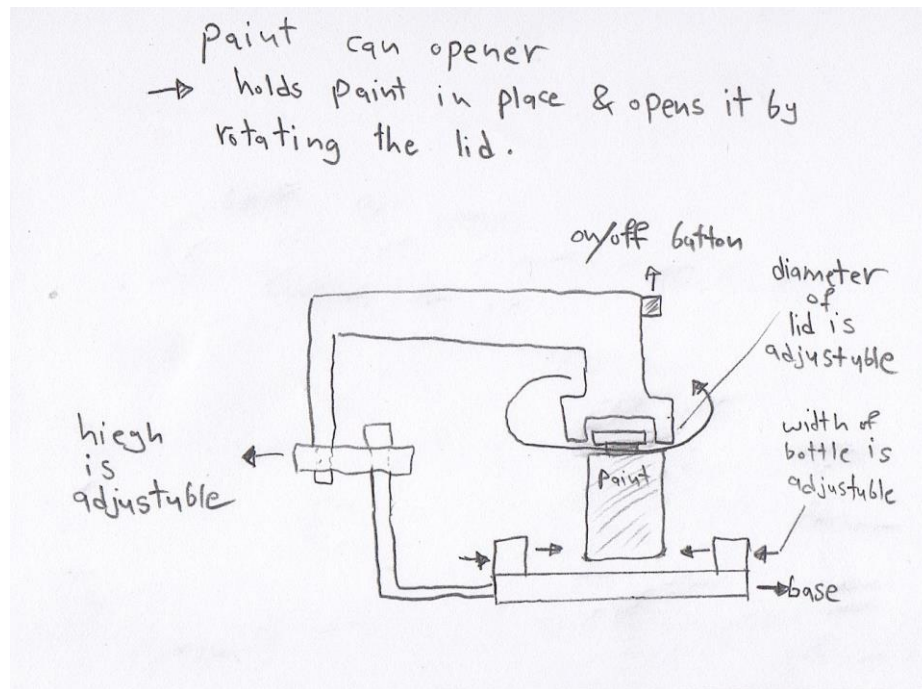 paint can opener
→ holds paint in place & opens it by
rotating the lid.
on/off button
diameter
of
lid is
adjustuble
hiegh
is
adjustuble
width of
bottle is
adjustuble
paint
base